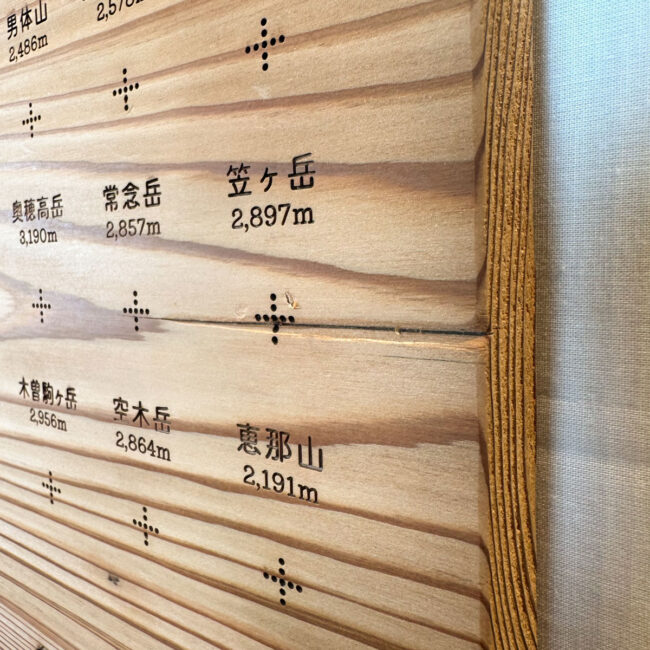 男体山
2,486m
笠ヶ岳
2,897m
常念岳
2,857m
奥穂高岳
3,190m
木曽駒ヶ岳
2,956m
空木岳
2,864m
恵那山
2,191m